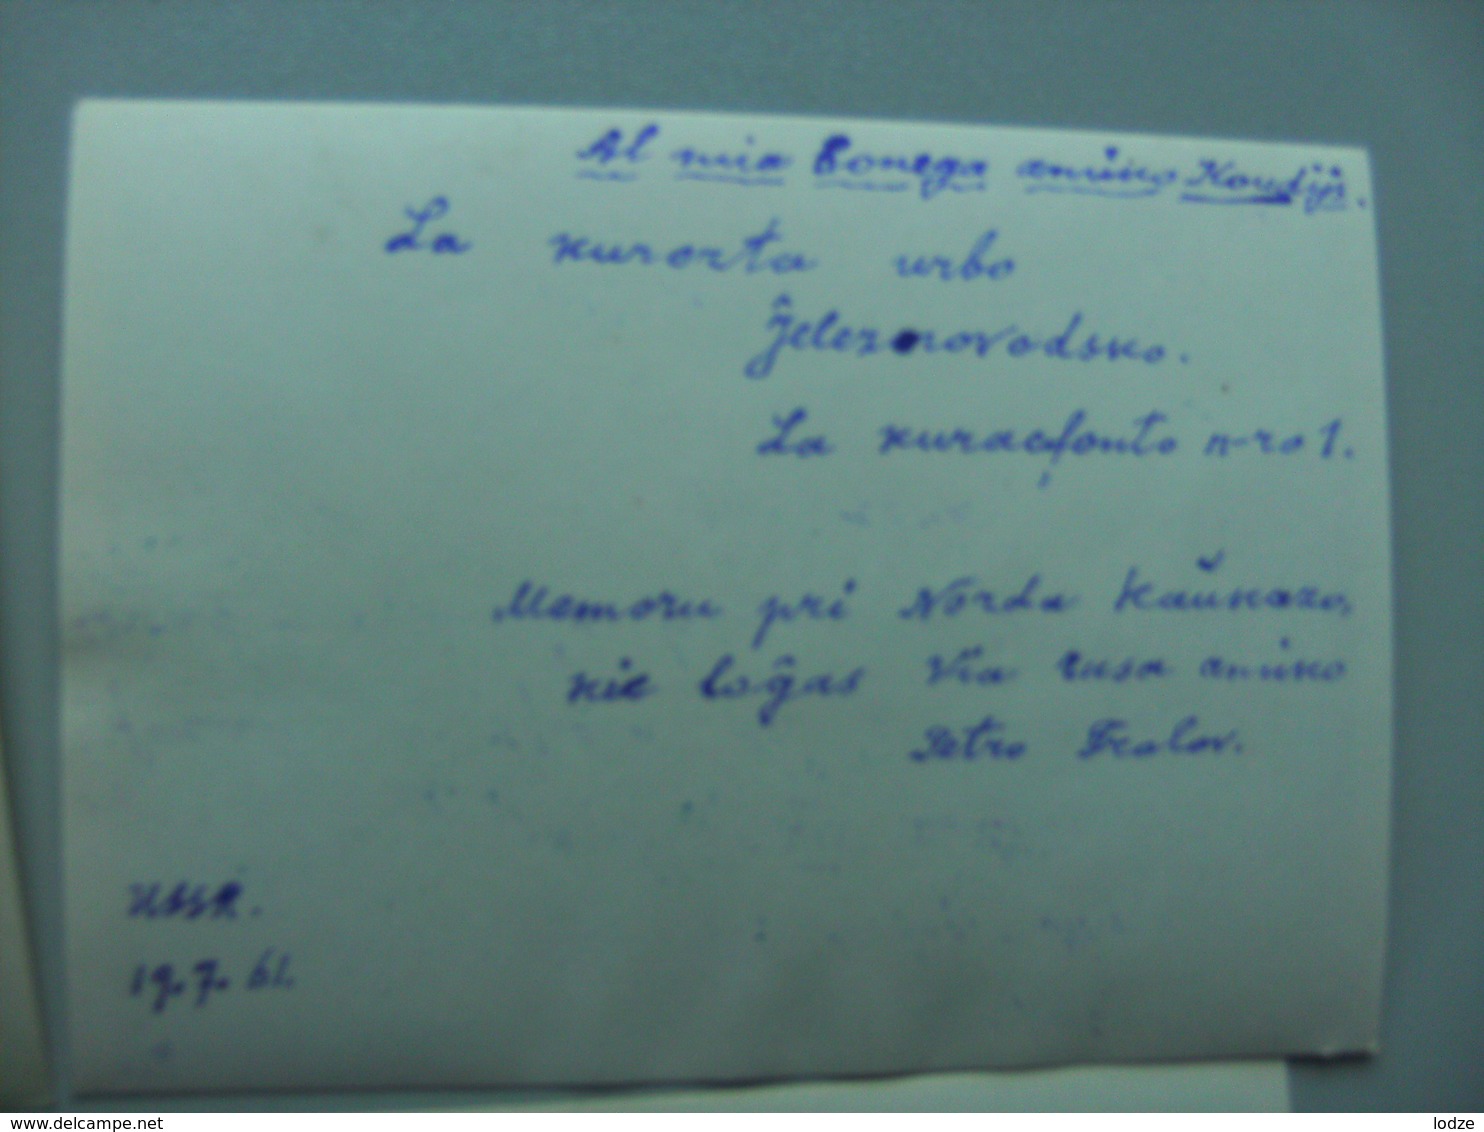 Al mia bonega amiko Koudijs.
La kurorta urbo
Ĵeleznovodsko.
La kuracfonto n-ro 1.
Memoru pri Norda Kaŭkazo,
kie loĝas Via rusa amiko
Petro Frolov.
USSR.
19.7.61.
www.delcampe.net
lodze